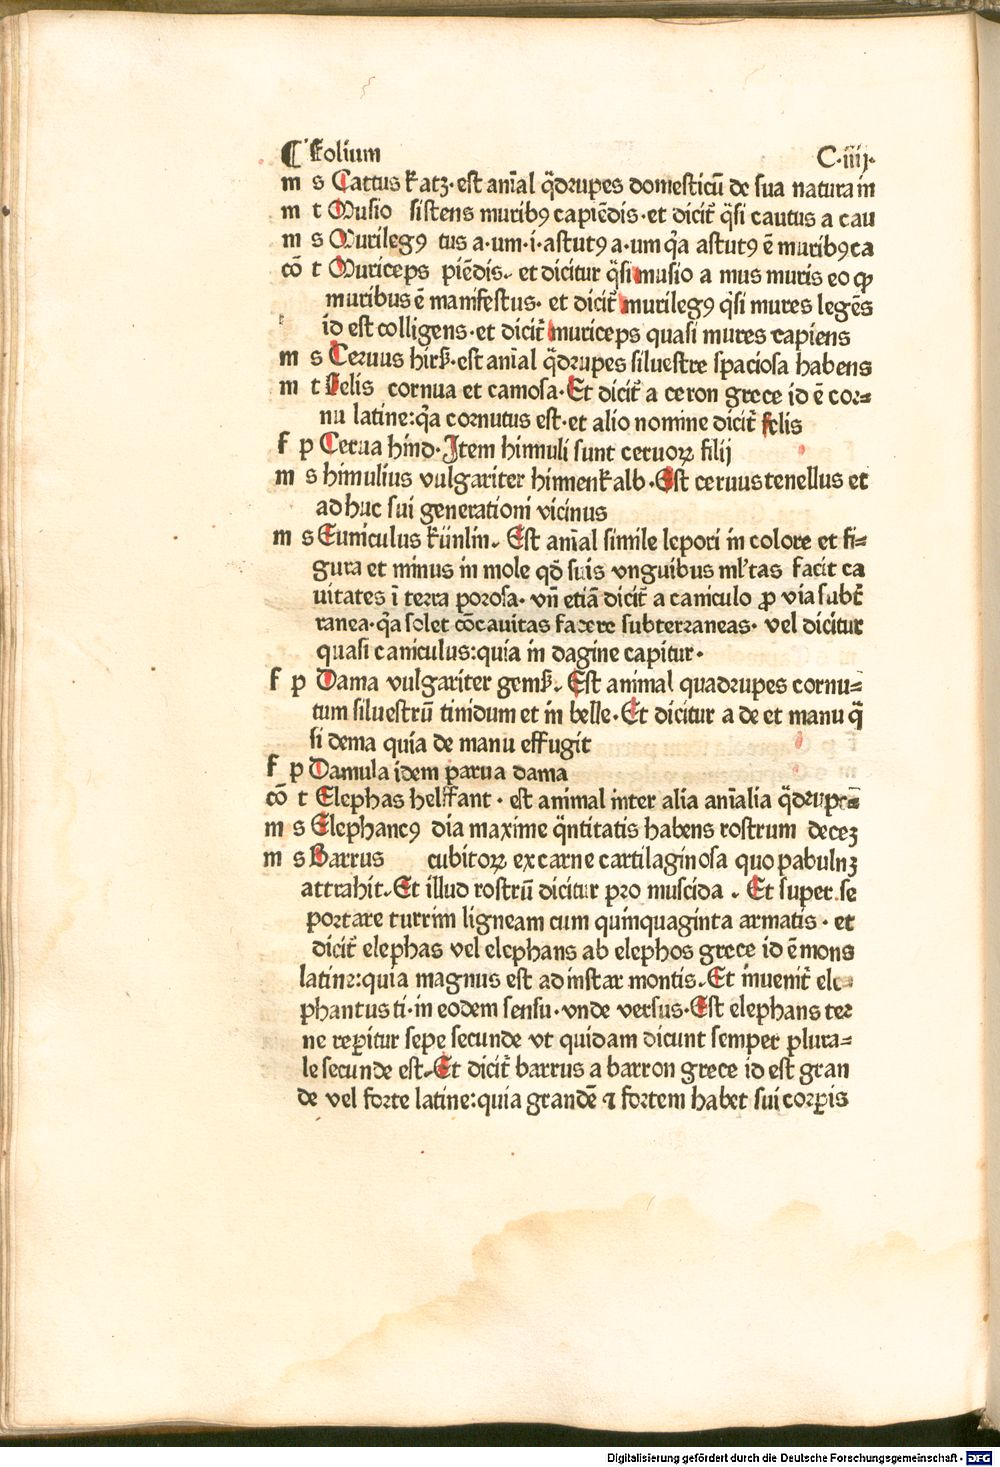 ¶ Folium C·iiij·
m s Cattus katz·est anīal q̄drupes domesticū de sua natura in
m t Musio sistens muribꝰ capiēdis·et dicit̄ q̄si cautus a cau
m s Murilegꝰ tus a·um·i·astutꝰ a·um qͣa astutꝰ ē muribꝰ ca
cō t Muriceps piēdis· et dicitur q̄si musio a mus muris eo ꝙ
muribus ē manifestus· et dicit̄ murilegꝰ q̄si mures legēs
id est colligens·et dicit̄ muriceps quasi mures capiens
m s Ceruus hirß·est anīal q̄drupes siluestre spaciosa habens
m t Felis cornua et camosa·Et dicit̄ a ceron grece id ē cor⸗
nu latine:qͣa cornutus est·et alio nomine dicit̄ felis
f p Cerua hind·Item hinnuli sunt ceruoꝝ filij
m s himulius vulgariter hinnenkalb·Est ceruus tenellus et
ad huc sui generationi vicinus
m s Cuniculus künlin· Est anīal simile lepori in colore et fi⸗
gura et minus in mole qd̄ suis vnguibus ml'tas facit ca
uitates ī terra porosa· vn̄ etiā dicit̄ a caniculo ꝓ via subt̄
ranea·qͣa solet cōcauitas facere subterraneas· vel dicitur
quasi caniculus:quia in dagine capitur·
f p Dama vulgariter gemß· Est animal quadrupes cornu⸗
tum siluestrū timidum et in belle·Et dicitur a de et manu q̄
si dema quia de manu effugit
f p Damula idem parua dama
cō t Elephas helffant · est animal inter alia anīalia q̄drupe
m s Elephancꝰ dia maxime q̄ntitatis habens rostrum decēꝫ
m s Barrus cubitoꝝ ex carne cartilaginosa quo pabulūꝫ
attrahit·Et illud rostrū dicitur pro muscida · Et super se
portare turrim ligneam cum quinquaginta armatis · et
dicit̄ elephas vel elephans ab elephos grece id ē mons
latine:quia magnus est ad instar montis·Et inuenit̄ ele
phantus ti·in eodem sensu·vnde versus·Est elephans ter
ne reꝑitur sepe secunde vt quidam dicunt semper plura⸗
le secunde est·Et dicit̄ barrus a barron grece id est gran
de vel forte latine:quia grandē ⁊ fortem habet sui corꝑis
Digitalisierung gefördert durch die Deutsche Forschungsgemeinschaft · DFG